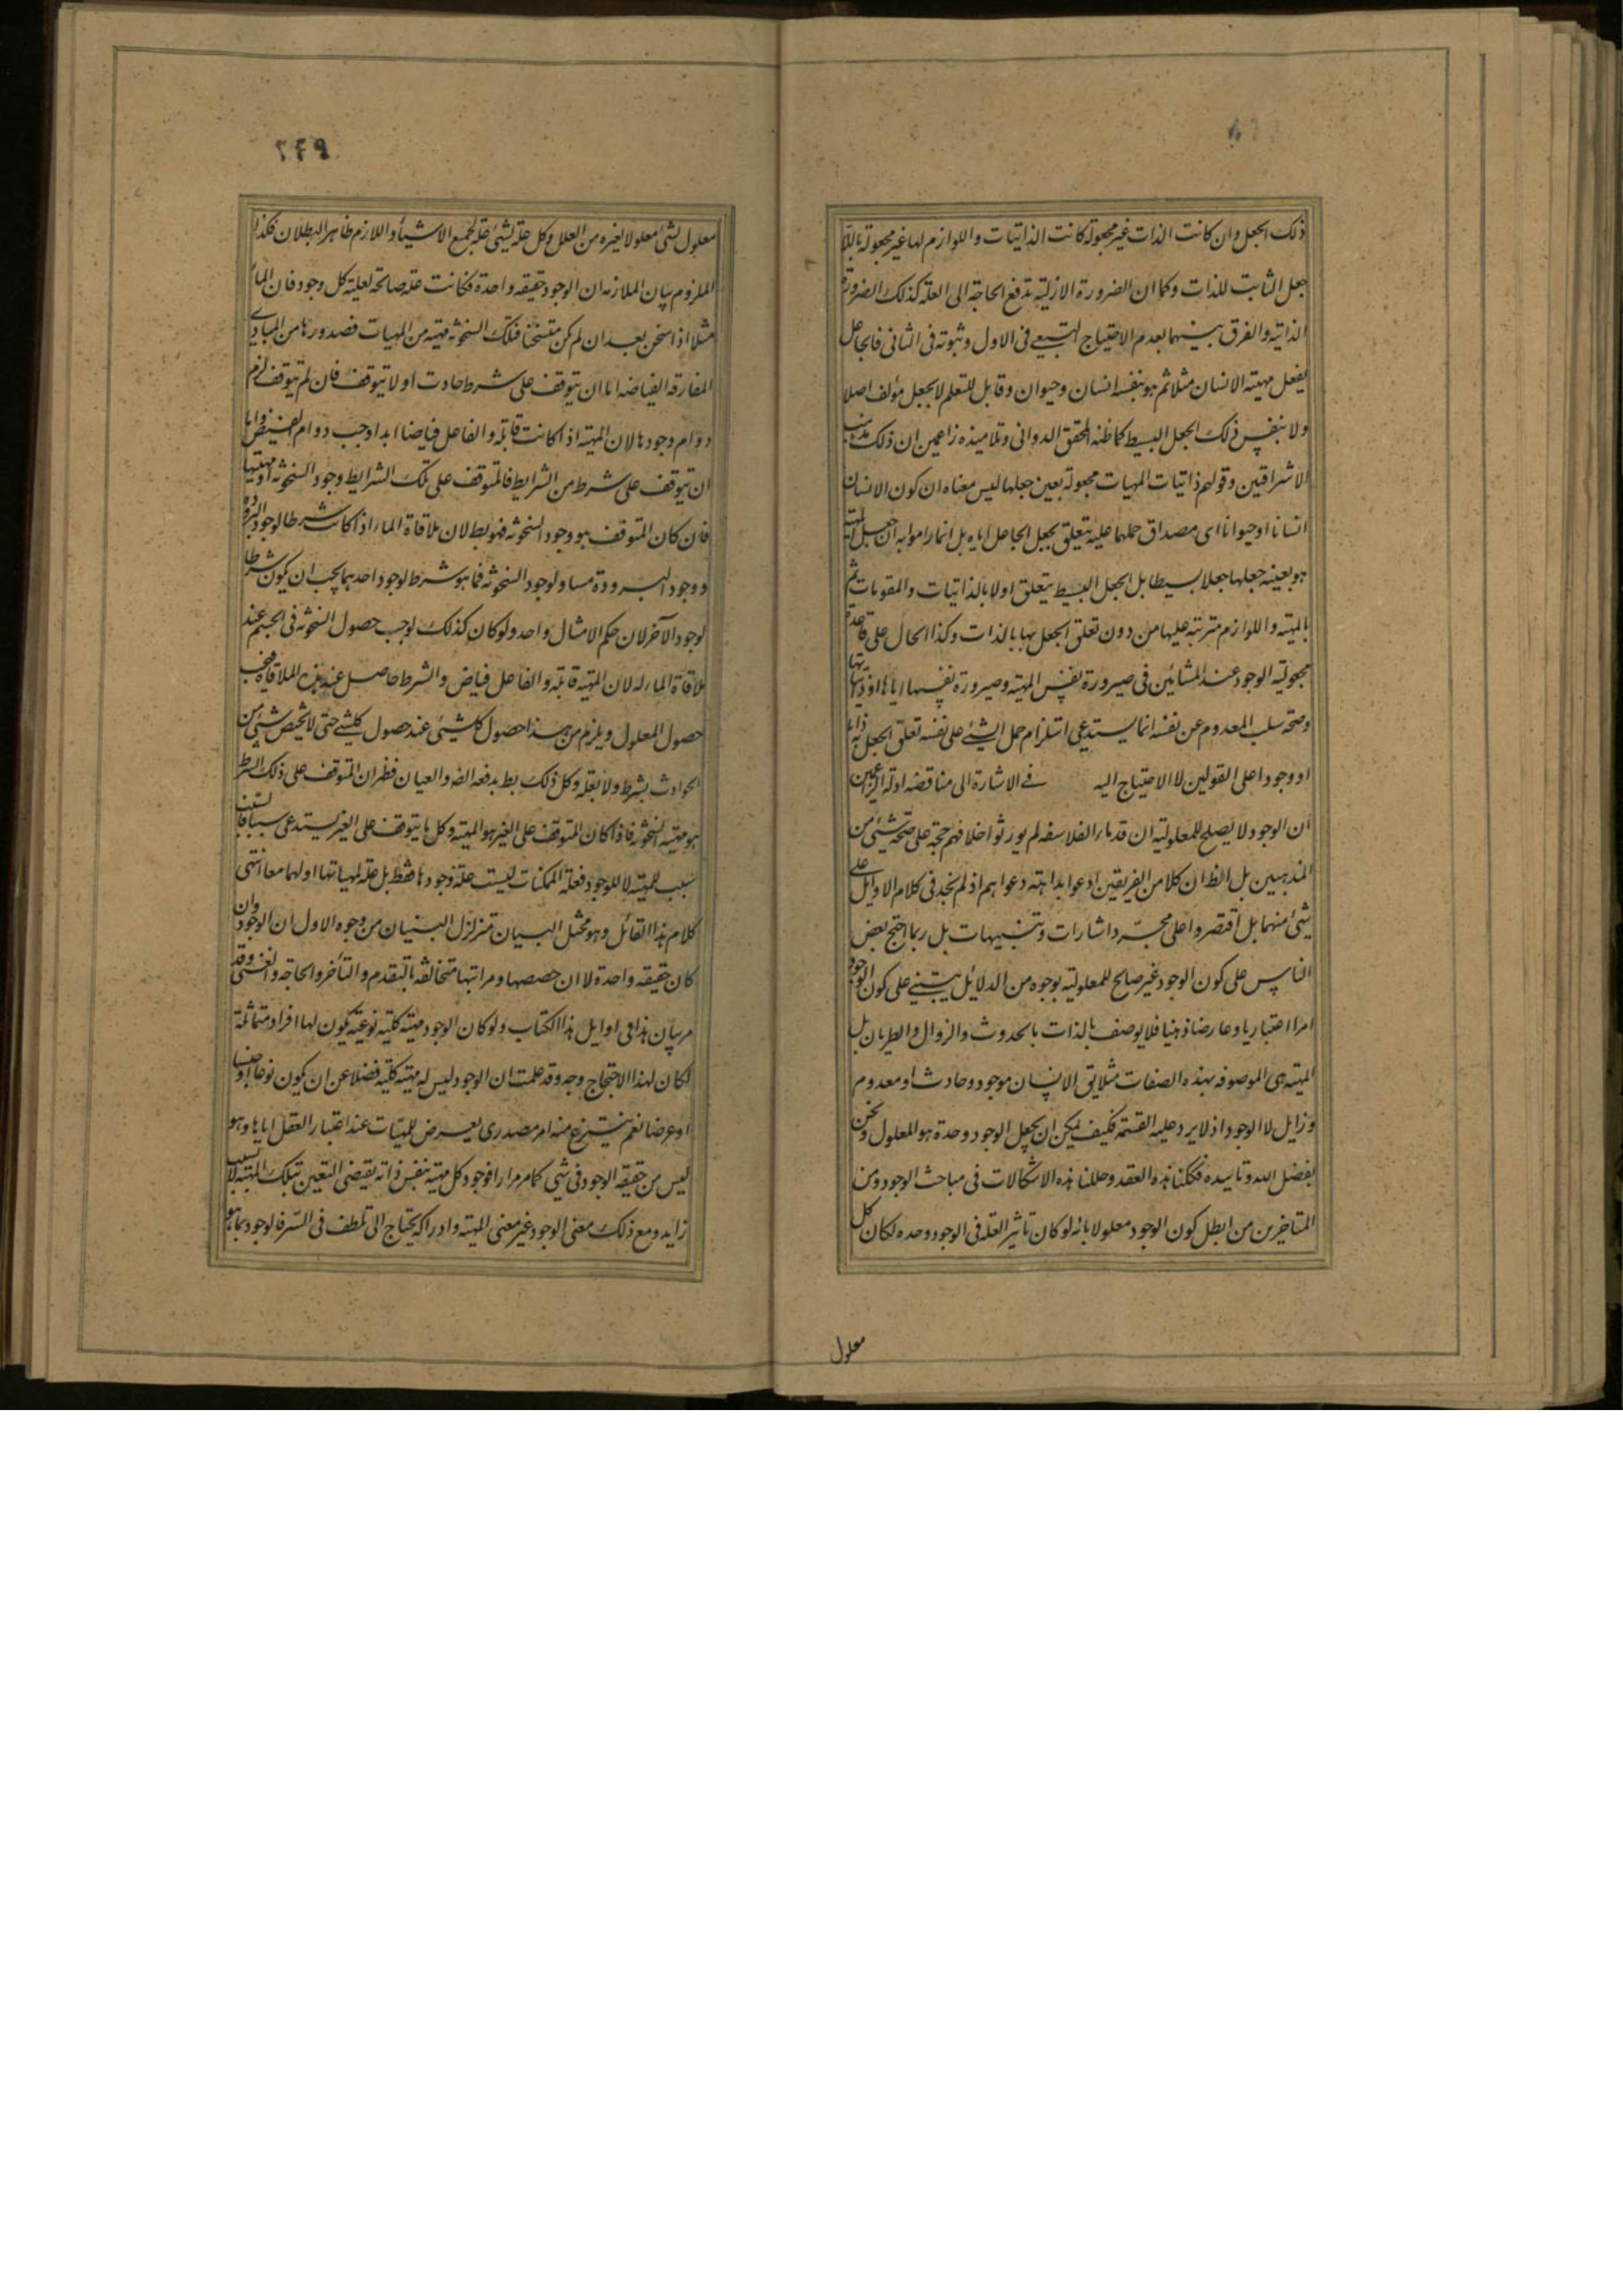 ذلك الجعل وان كانت الذات غير مجعولة كانت الذاتيات و اللوازم لها غير مجعولة باللا
جعل الثابت للذات وكما ان الضرورة الازلية تدفع الحاجة الى العلة كذلك الضرورة
الذاتية والفرق بينهما بعدم الاحتياج التبعى فى الاول وثبوته فى الثانى فالجاعل
يفعل مهية الانسان مثلا ثم هو بنفسه انسان وحيوان وقابل للتعلم لا بجعل مؤلف اصلا
ولا بنفس ذلك الجعل البسيط كما ظنه المحقق الدوانى وتلاميذه زاعمين ان ذلك مذهب
الاشراقيين وقولهم ذاتيات المهيات مجعولة بعين جعلها ليس معناه ان كون الانسان
انسانا او حيوانا اى مصداق حملهما عليه يتعلق بجعل الجاعل اياه بل انما راموا به ان جعل المهية
هو بعينه جعلها جعلا بسيطا بل الجعل البسيط يتعلق اولا بالذاتيات والمقومات ثم
بالمهية و اللوازم مترتبة عليها من دون تعلق الجعل بها بالذات وكذا الحال على قاعدة
مجعولية الوجود عند المشائين فى صيرورة نفس المهية وصيرورة نفسها اياها او ذاتياتها
وصحة سلب المعدوم عن نفسه انما يستدعى استلزام حمل الشئ على نفسه تعلق الجعل به ذاتا
او وجودا على القولين لا الاحتياج اليه فى الاشارة الى مناقضة ادلة الزاعمين
ان الوجود لا يصلح للمعلولية ان قدماء الفلاسفة لم يورثوا اخلافهم حجة على صحة شئ من
المذهبين بل الظ ان كلا من الفريقين ادعوا بداهة دعواهم اذ لم نجد فى كلام الاوايل على
شئ منهما بل اقتصروا على مجرد اشارات وتنبيهات بل ربما احتج بعض
الناس على كون الوجود غير صالح للمعلولية بوجوه من الدلائل يبتنى على كون الوجود
امرا اعتباريا وعارضا ذهنيا فلا يوصف بالذات بالحدوث والزوال والطريان بل
المهية هى الموصوفة بهذه الصفات مثلا يق الانسان موجود وحادث او معدوم
وزايل لا الوجود اذ لا يرد عليه القسمة فكيف يمكن ان يجعل الوجود وحده هو المعلول ونحن
بفضل الله وتاييده فككنا هذه العقد وحللنا هذه الاشكالات فى مباحث الوجود ومن
المتاخرين من ابطل كون الوجود معلولا بانه لو كان تاثير العلة فى الوجود وحده لكان كل
معلول
٢٤٩
معلول لشئ معلولا لغيره من العلل وكل علة لشئ علة لجميع الاشياء واللازم ظاهر البطلان فكذا
الملزوم بيان الملازمة ان الوجود حقيقة واحدة فكانت علة صالحة لعلية كل وجود فان الماء
مثلا اذا سخن بعد ان لم يكن متسخنا فتلك السخونة مهية من المهيات فصدورها من المبادى
المفارقة الفياضة اما ان يتوقف على شرط حادث او لا يتوقف فان لم يتوقف لزم
دوام وجودها لان المهية اذا كانت قابلة والفاعل فياضا ابدا وجب دوام الفيض واما
ان يتوقف على شرط من الشرايط فالمتوقف على تلك الشرايط وجود السخونة او مهيتها
فان كان المتوقف هو وجود السخونة فهو بط لان ملاقاة الماء اذا كانت شرطا لوجود البرودة
ووجود البرودة مساو لوجود السخونة فما هو شرط لوجود احدهما يجب ان يكون شرطا
لوجود الآخر لان حكم الامثال واحد ولو كان كذلك لوجب حصول السخونة فى الجسم عند
ملاقاة الماء له لان المهية قابلة والفاعل فياض والشرط حاصل عند هذه الملاقاة فيجب
حصول المعلول ويلزم من هذا حصول كل شئ عند حصول كل شئ حتى لا يختص شئ من
الحوادث بشرط ولا بعلة وكل ذلك بط يدفعه الضرورة والعيان فظهر ان المتوقف على ذلك الشرط
هو مهية السخونة فاذا كان المتوقف على الغير هو المهية وكل ما يتوقف على الغير يستدعى سببا فالسبب
سبب للمهية لا للوجود فعلة الممكنات ليست علة وجودها فقط بل علة لمهياتها او لهما معا انتهى
كلام هذا القائل وهو مختل البيان متزلزل البنيان من وجوه الاول ان الوجود وان
كان حقيقة واحدة الا ان حصصها ومراتبها متخالفة بالتقدم والتأخر والحاجة والغنى وقد
مر بيان هذا فى اوايل هذا الكتاب ولو كان الوجود مهية كلية نوعية يكون لها افراد متماثلة
لكان لهذا الاحتجاج وجه وقد علمت ان الوجود ليس له مهية كلية فضلا عن ان يكون نوعا او جنسا
او عرضا نعم ينتزع منه امر مصدرى يعرض للمهيات عند اعتبار العقل اياها وهو
ليس من حقيقة الوجود فى شئ كما مر مرارا فوجود كل مهية بنفس ذاته يقتضى التعين بتلك المهية لا بسبب
زايد ومع ذلك معنى الوجود غير معنى المهية وادراكه يحتاج الى تلطف فى السر فالوجود بما هو